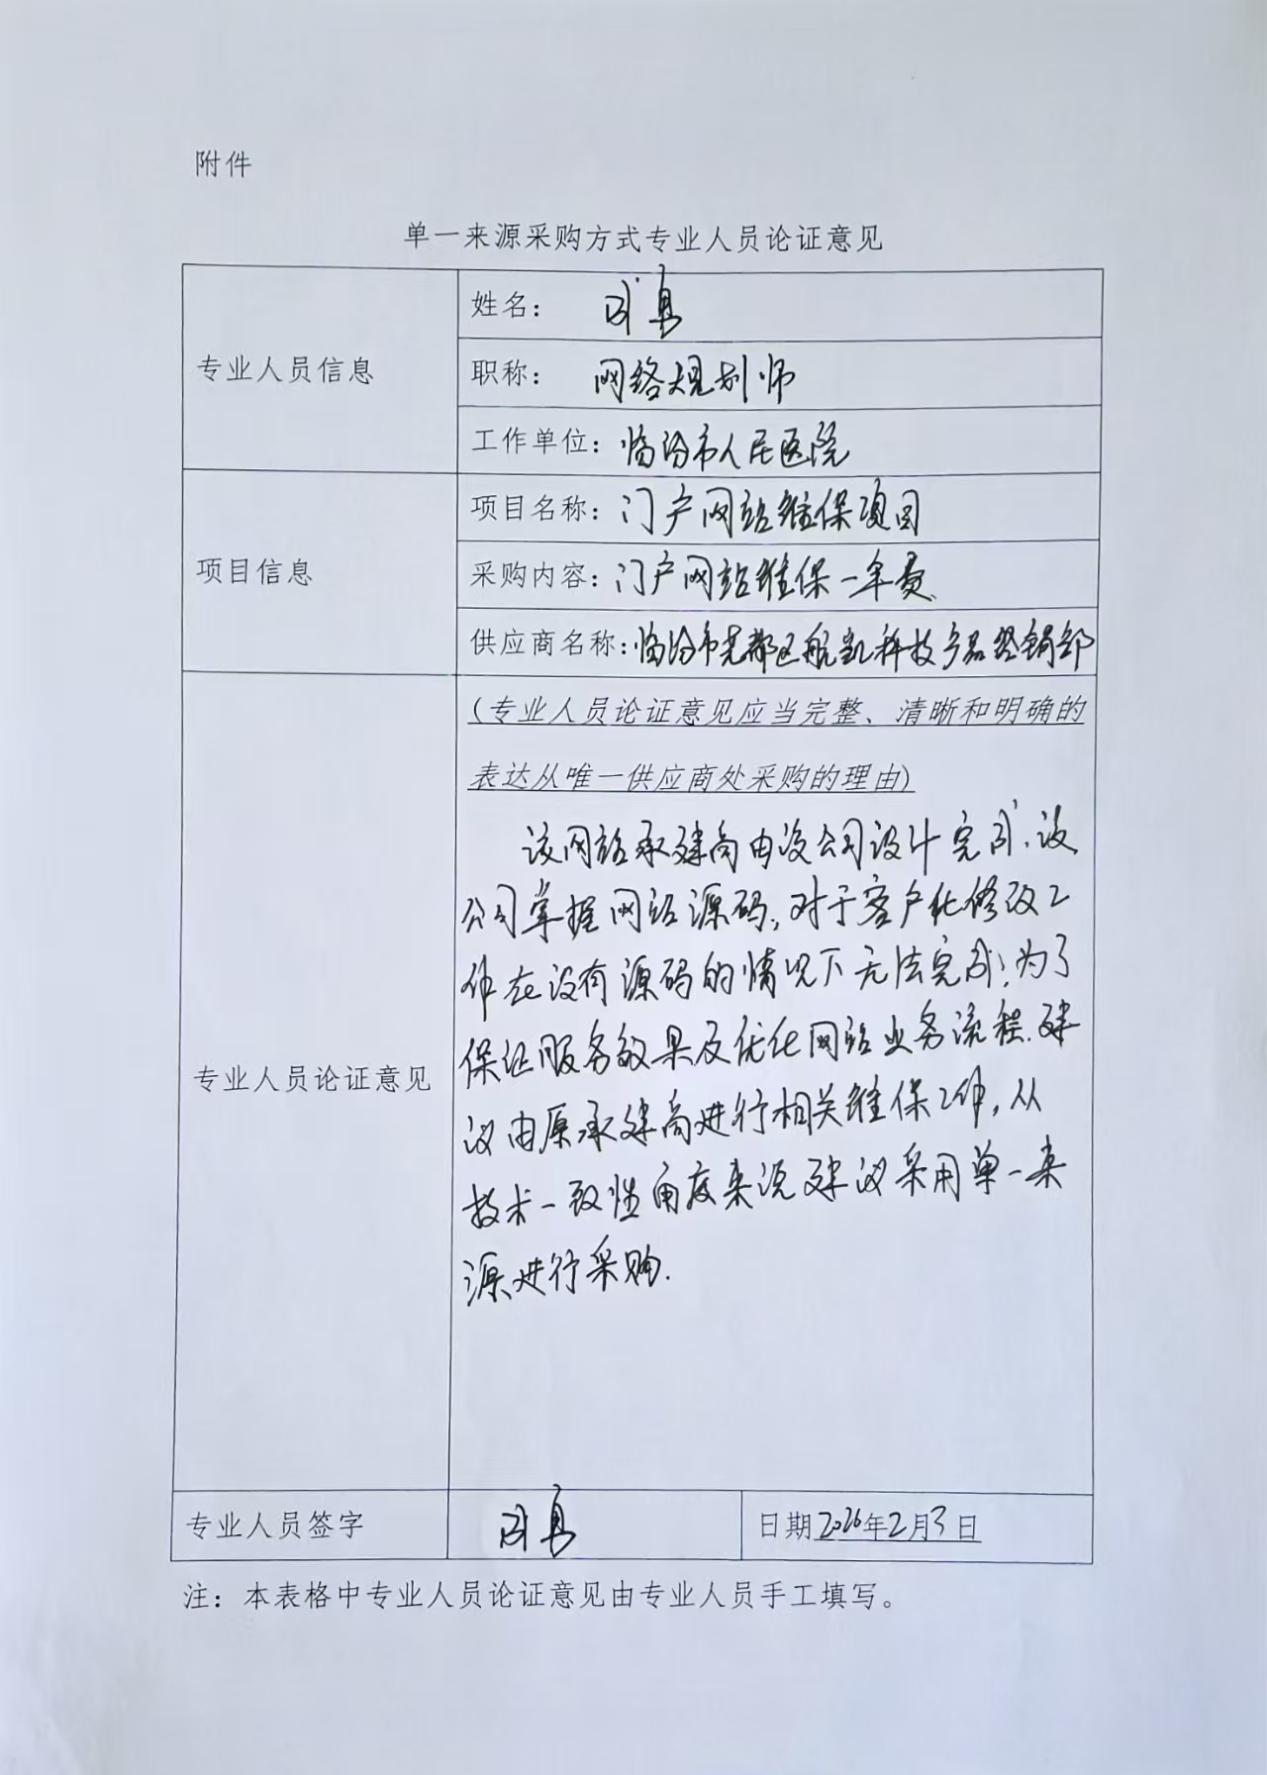 附件
单一来源采购方式专业人员论证意见
专业人员信息
姓名：
职称： 网络规划师
工作单位：临汾市人民医院
项目信息
项目名称：门户网站维保项目
采购内容：门户网站维保一年费
供应商名称：临汾市尧都区航凯科技产品经销部
专业人员论证意见
(专业人员论证意见应当完整、清晰和明确的
表达从唯一供应商处采购的理由)
该网站承建商由该公司设计完成，该
公司掌握网站源码，对于客户化修改工
作在没有源码的情况下无法完成；为了
保证服务效果及优化网站业务流程，建
议由原承建商进行相关维保工作，从
技术一致性角度来说建议采用单一来
源进行采购.
专业人员签字
日期2026年2月3日
注：本表格中专业人员论证意见由专业人员手工填写。